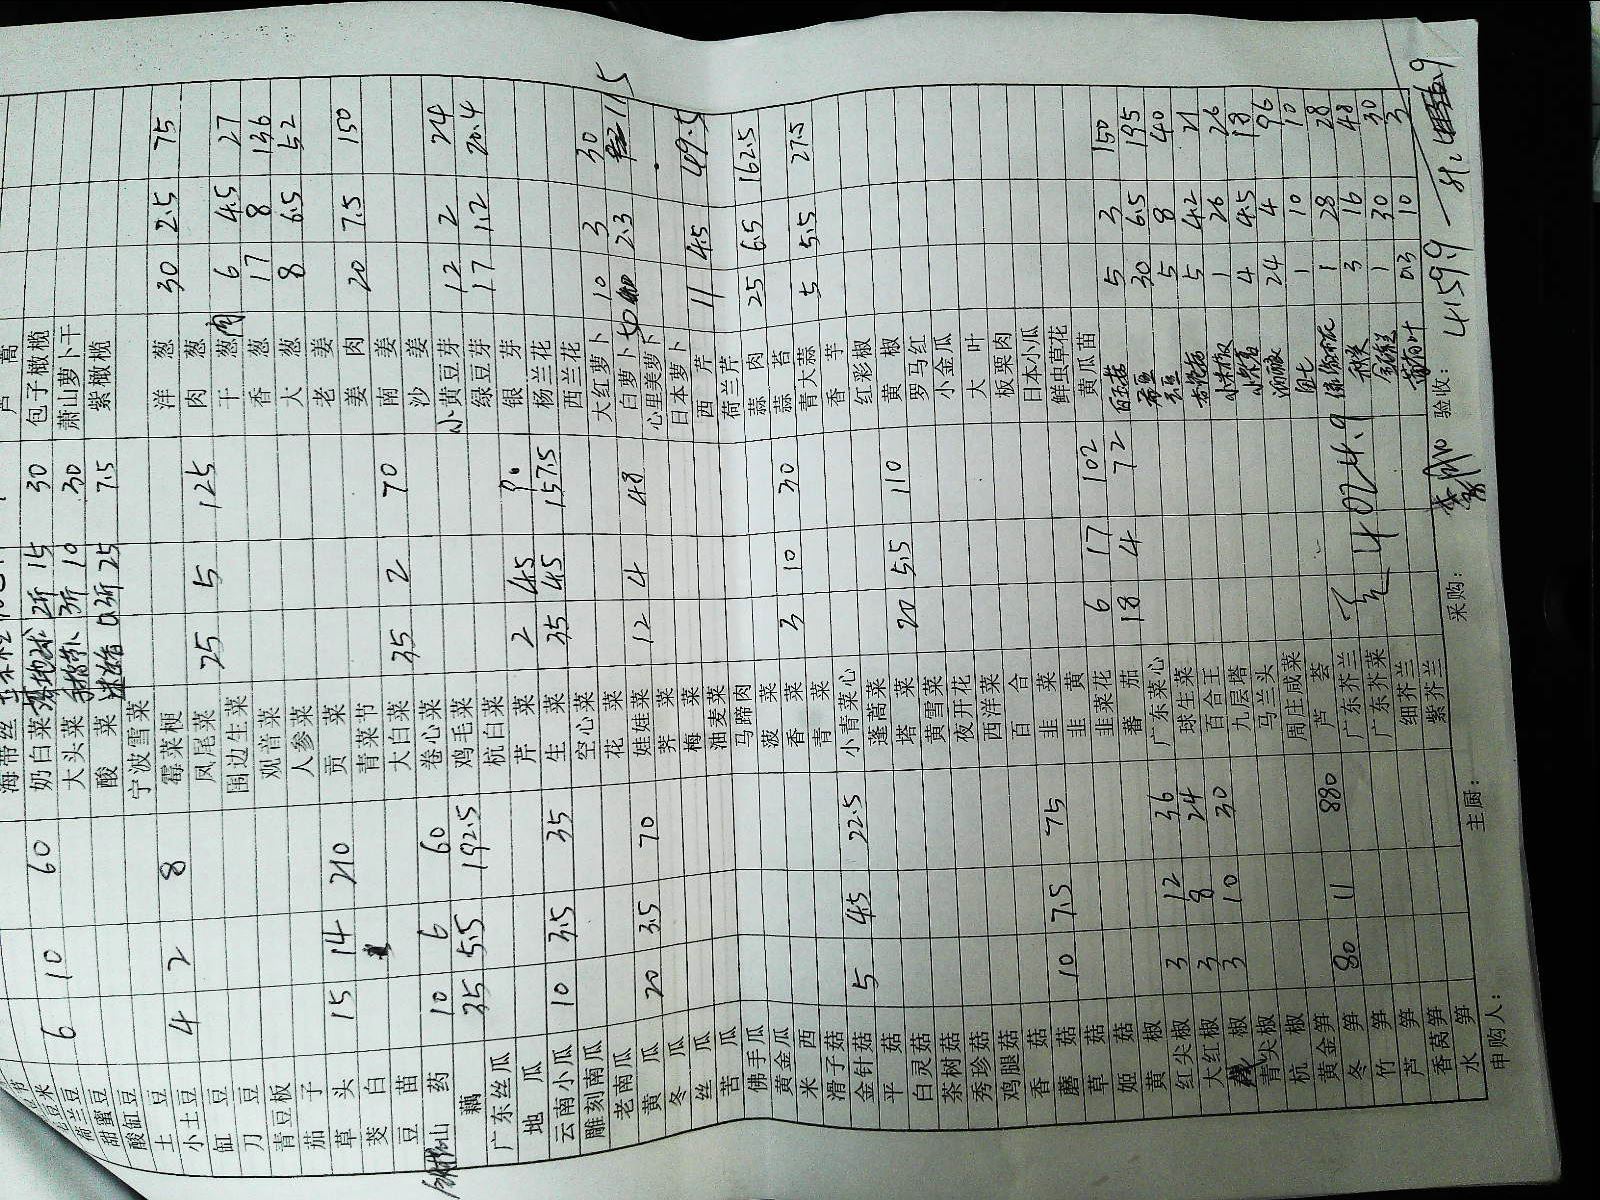 芦蒿
海带丝
荷兰豆 6 10 60
甜蜜豆
酸缸豆
土豆
小土豆 4 2 8
缸豆
刀豆
青豆板
茄子
草头 15 14 210
茭白
豆苗
山药 10 6 60
藕 35 5.5 192.5
广东丝瓜
地瓜
云南小瓜 10 3.5 35
雕刻南瓜
老南瓜
黄瓜 20 3.5 70
冬瓜
丝瓜
苦瓜
佛手瓜
黄金瓜
米西
滑子菇
金针菇 5 4.5 22.5
平菇
白灵菇
茶树菇
秀珍菇
鸡腿菇
香菇
蘑菇 10 7.5 75
草菇
姬菇
黄椒
红尖椒 3 12 36
大红椒 3 8 24
椒 3 10 30
青尖椒
杭椒
黄金笋
冬笋 80 11 880
竹笋
芦笋
香莴笋
水笋
奶白菜 地球 2斤 15 30
大头菜 3斤 10 30
酸菜 0.3斤 25 7.5
宁波雪菜
霉菜梗
凤尾菜 25 5 125
围边生菜
观音菜
人参菜
贡菜
青菜节
大白菜 35 2 70
卷心菜
鸡毛菜
杭白菜
芹菜 2 4.5 9
生菜 35 4.5 157.5
空心菜
花菜
娃娃菜 12 4 48
荠菜
梅菜
油麦菜
马蹄肉
菠菜
香菜 3 10 30
青菜
小青菜心
蓬蒿菜
塔菜 20 5.5 110
黄雪菜
夜开花
西洋菜
百合
韭菜
韭黄
韭菜花 6 17 102
番茄 18 4 72
广东菜心
球生菜
百合王
九层塔
马兰头
周庄咸菜
芦荟
广东芥兰
广东芥菜
细芥兰
紫芥兰
4024.9
包子橄榄
萧山萝卜干
紫橄榄
洋葱 30 2.5 75
肉葱
干葱肉 6 4.5 27
香葱 17 8 136
大葱 8 6.5 52
老姜
姜肉 20 7.5 150
南姜
沙姜
小黄豆芽 12 2 24
绿豆芽 17 1.2 20.4
银芽
杨兰花
西兰花
大红萝卜 10 3 30
白萝卜 50 2.3 115
心里美萝卜
日本萝卜
西芹 11 4.5 49.5
荷兰芹
蒜肉 25 6.5 162.5
蒜苔
青大蒜 5 5.5 27.5
香芋
红彩椒
黄椒
罗马红
小金瓜
大叶
板栗肉
日本小瓜
鲜虫草花
黄瓜苗
5 3 150
30 6.5 195
5 8 40
5 4.2 21
1 26 26
4 4.5 18
24 4 96
1 10 10
1 28 28
3 16 48
1 30 30
0.3 10 3
申购人： 主厨： 采购： 验收： 4159.9